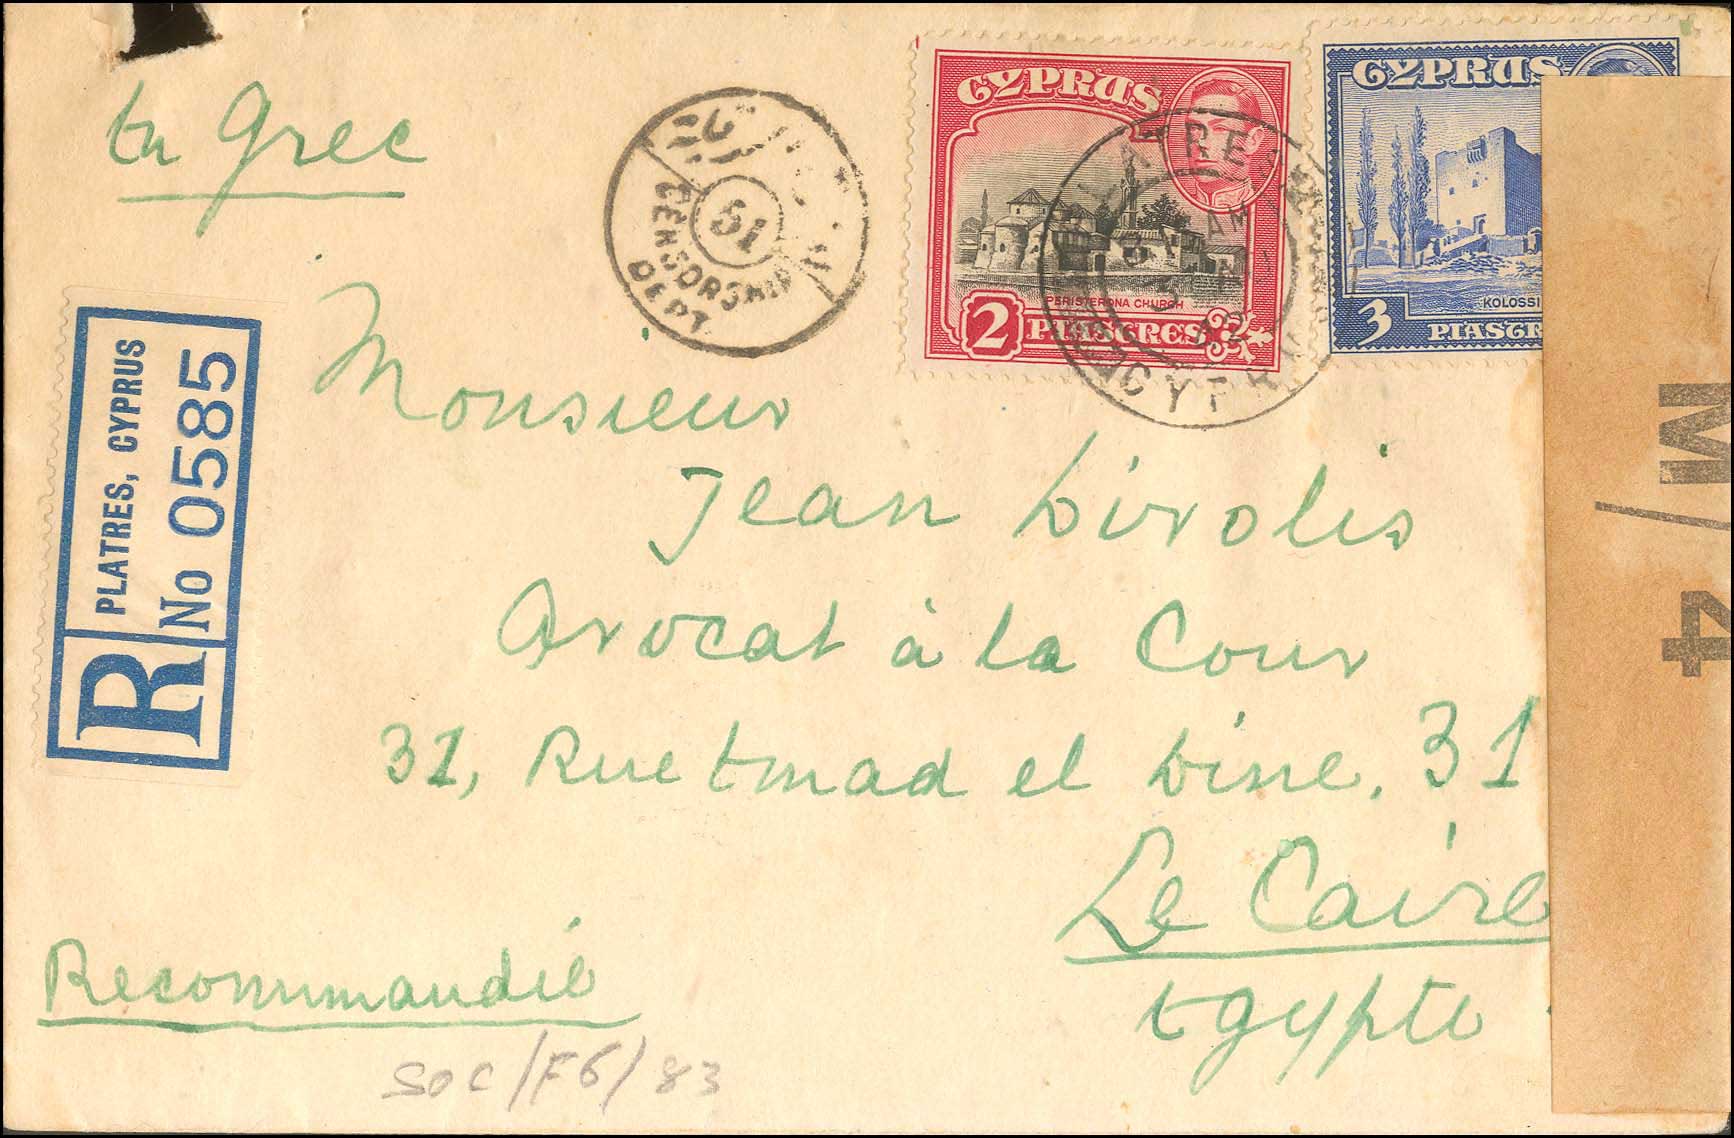 En Grec
CENSORSHIP
DEPT.
51
CYPRUS
PERISTERONA CHURCH
2 PIASTRES
CYPRUS
KOLOSSI
3 PIASTR
AM
CYPR
R
PLATRES, CYPRUS
No 0585
M/4
Monsieur
Jean Divolis
Avocat à la Cour
31, Rue Emad el Dine, 31
Le Caire
Egypte
Recommandié
SOC/F6/83